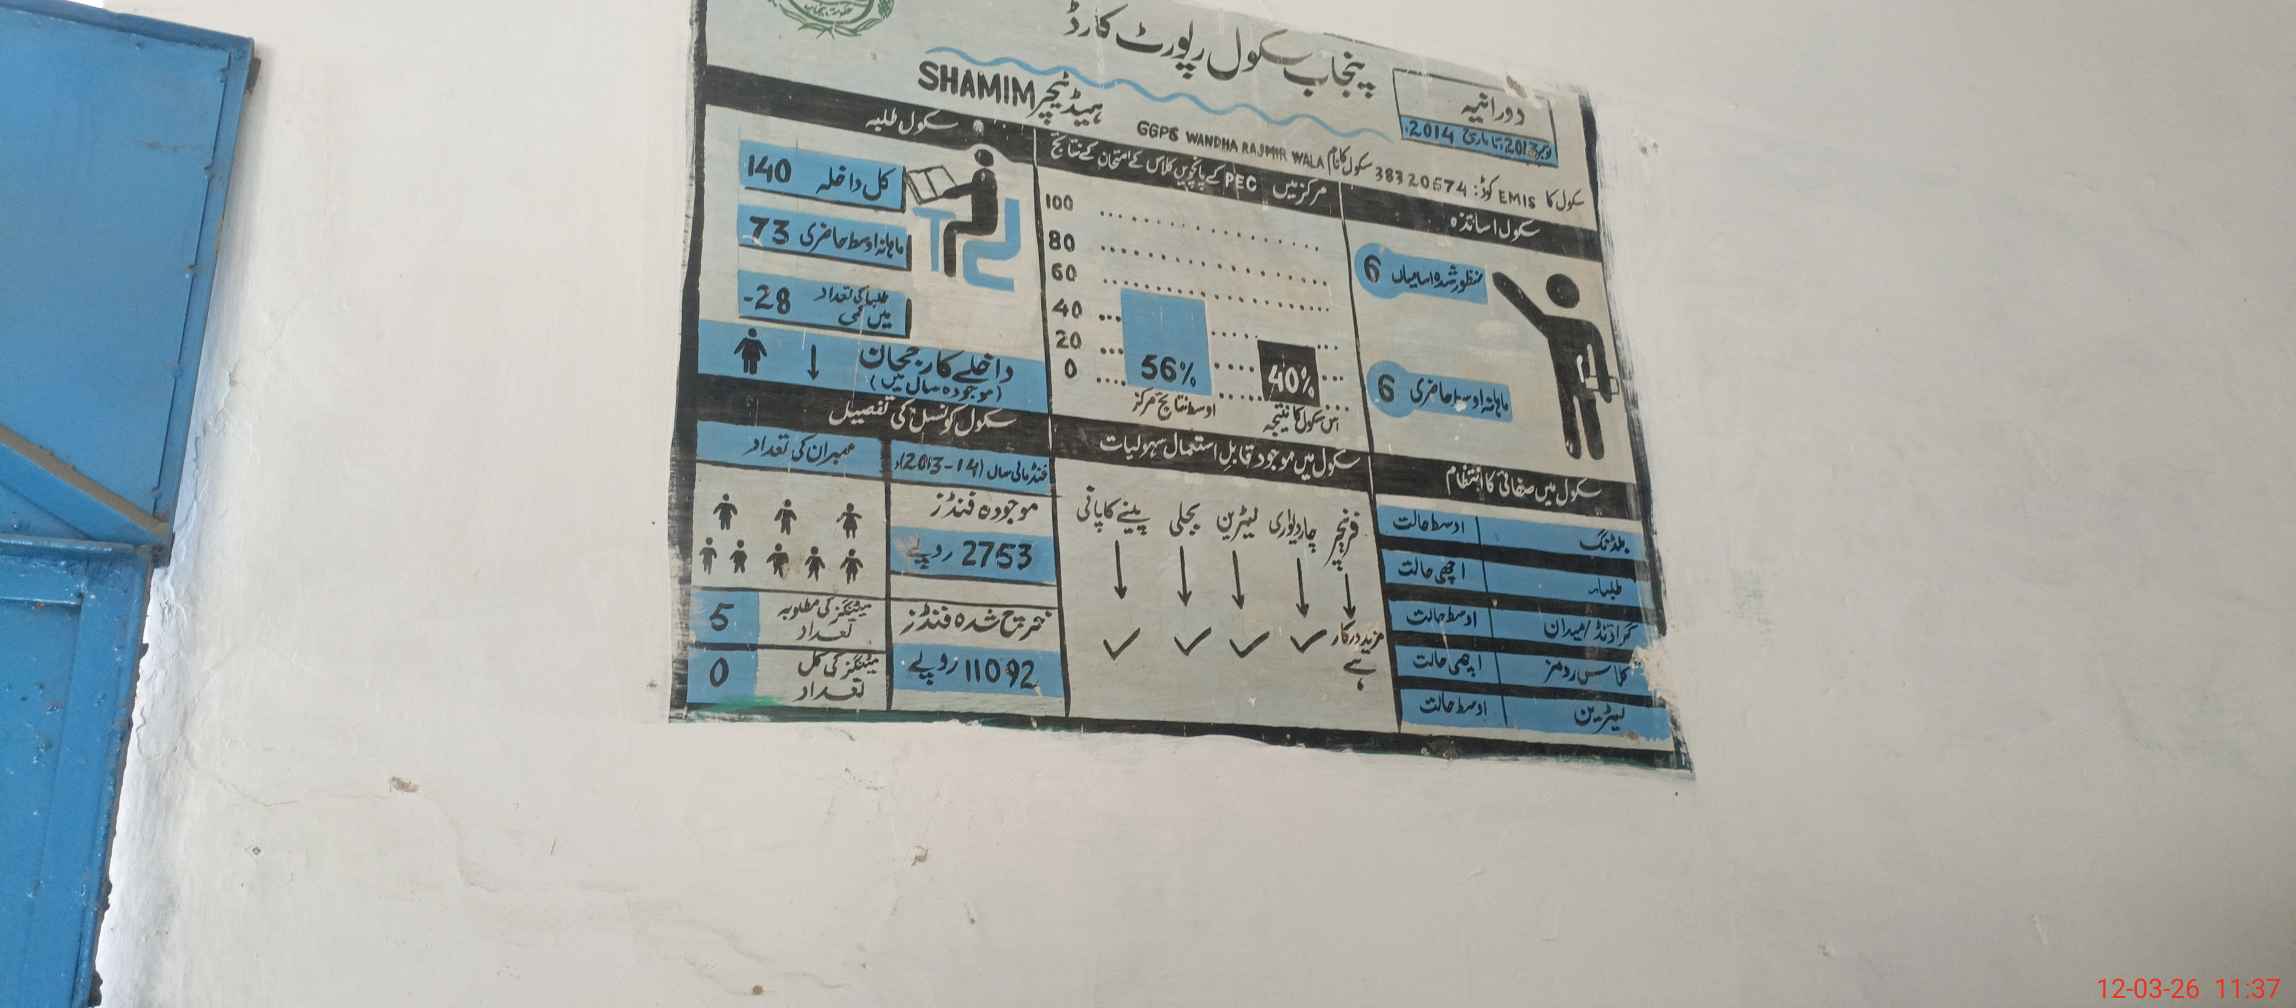 حکومت پنجاب
پنجاب سکول رپورٹ کارڈ
دورانیہ
نومبر 2013ء تا مارچ 2014ء
ہیڈ ٹیچر SHAMIM
سکول کا EMIS کوڈ: 38320574 سکول کا نام GGPS WANDHA RAJMIR WALA
سکول طلبہ
کل داخلہ 140
ماہانہ اوسط حاضری 73
طلبا کی تعداد میں کمی -28
داخلے کا رجحان
(موجودہ سال میں)
مرکز میں PEC کے پانچویں کلاس کے امتحان کے نتائج
100
80
60
40
20
0
56%
40%
اوسط نتائج مرکز
اس سکول کا نتیجہ
سکول اساتذہ
منظور شدہ اسامیاں 6
ماہانہ اوسط حاضری 6
سکول کونسل کی تفصیل
ممبران کی تعداد
فنڈز مالی سال (2013-14)
موجودہ فنڈز
2753 روپے
خرچ شدہ فنڈز
11092 روپے
میٹنگز کی مطلوبہ تعداد 5
میٹنگز کی کل تعداد 0
سکول میں موجود قابل استعمال سہولیات
فرنیچر چاردیواری لیٹرین بجلی پینے کا پانی
مزید درکار ہے
سکول میں صفائی کا انتظام
بلڈنگ اوسط حالت
طلباء اچھی حالت
گراؤنڈ/میدان اوسط حالت
کلاس رومز اچھی حالت
لیٹرین اوسط حالت
12-03-26 11:37